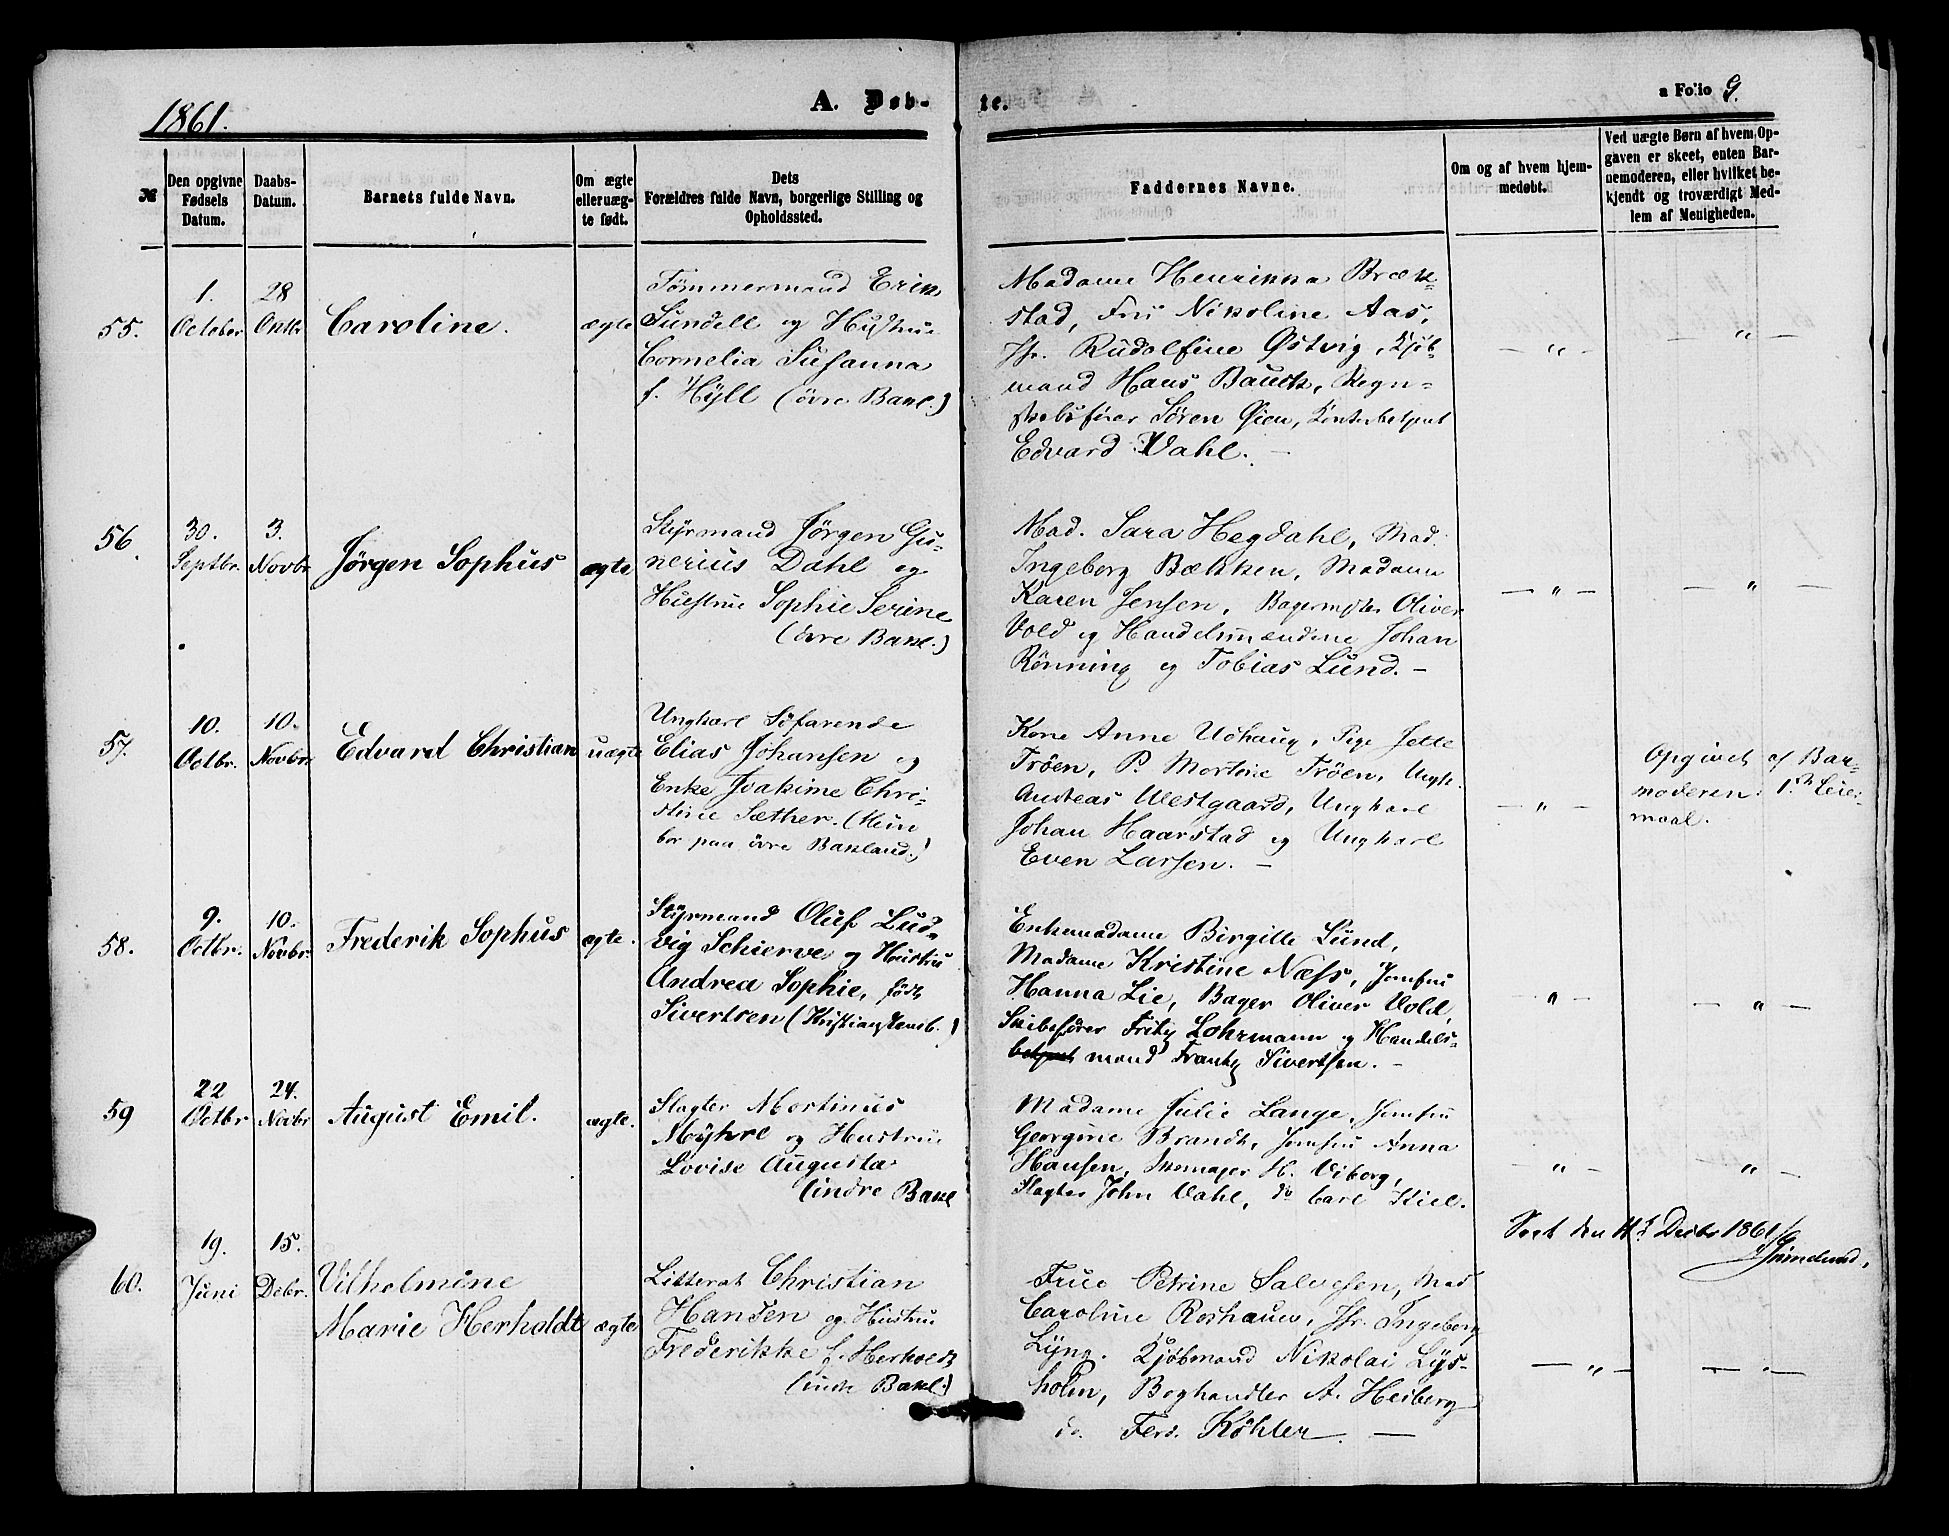 1861.
A. Døb-
te.
a Folio 9.
№
Den opgivne Fødsels Datum.
Daabs-Datum.
Barnets fulde Navn.
Om ægte eller uæg-te født.
Dets Forældres fulde Navn, borgerlige Stilling og Opholdssted.
Faddernes Navne.
Om og af hvem hjem-medøbt.
Ved uægte Børn af hvem Op-gaven er skeet, enten Bar-nemoderen, eller hvilket be-kjendt og troværdigt Med-lem af Menigheden.
55.
1. October
28 Octbr
Caroline.
ægte
Tømmermand Erik
Sundell og Hustrue
Cornelia Susanna
f. Hÿll (övre Bakl.)
Madame Henrikka Bræk-
stad, Frü Nikoline Aas,
Jfr. Rudolfine Østvig, Kjøb-
mand Hans Bauck, Regn-
skabsfører Søren Øien, Contorbetjent
Edvard Wahl. —
— " —
— " —
56.
30. Septbr.
3. Novbr.
Jørgen Sophus
ægte
Styrmand Jørgen Gu-
nerius Dahl og
Hustrue Sophie Serine
(övre Bakl.)
Mad. Sara Hegdahl, Mad.
Ingeborg Bækken, Madame
Karen Jensen, Bagermester Oliver
Vold og Handelsmændene Johan
Rønning og Tobias Lund. —
— " —
— " —
57.
10. Octbr.
10. Novbr.
Edvard Christian
uægte
Ungkarl Söfarende
Elias Johansen og
Enke Joakime Chri-
stine Sæther. (Hun
bor paa övre Bakland.)
Kone Anne Udhaug, Pige Jette
Trøen, P. Martine Trøen, Ungk.
Andreas Westgaard, Ungkarl
Johan Haarstad og Ungkarl
Even Larsen. —
— " —
Opgivet af Bar-
moderen. 1ste Leier-
maal.
58.
9. Octbr.
10. Novbr.
Frederik Sophus
ægte.
Styrmand Oluf Lud-
vig Schierve og Hustru
Andrea Sophie, født
Sivertsen (Kristianstensb.)
Enkemadame Birgitte Lünd,
Madame Kristine Næss, Jomfru
Hanna Lie, Bager Oliver Vold,
Skibsfører Fritz Lohrmann og Handels-
betjent mand Frantz Sivertsen. —
— " —
— " —
59
22 Octbr
24. Novbr
August Emil.
ægte.
Slagter Martinus
Mÿhre og Hustrue
Lovise Augusta
(indre Bakl
Madame Julie Lange, Jomfru
Georgine Brandt, Jomfru Anna
Hansen, Skomager H. Viborg,
Slagter John Dahl, do Carl Kiel.
— " —
— " —
60.
19. Juni
15. Debr.
Vilhelmine
Marie Herholdt
ægte
Litterat Christian
Hansen og Hustru
Frederikke f. Herholdt
(indre Bakl.)
Frue Petrine Salvesen, Mad
Caroline Roshauw, Jfr. Ingeborg
Lÿng. Kjøbmand Nikolai Lÿs-
holm, Boghandler A. Heiberg
do. Ferd. Köhler. —
— " —
— " —
Seet den 14d Decbr 1861